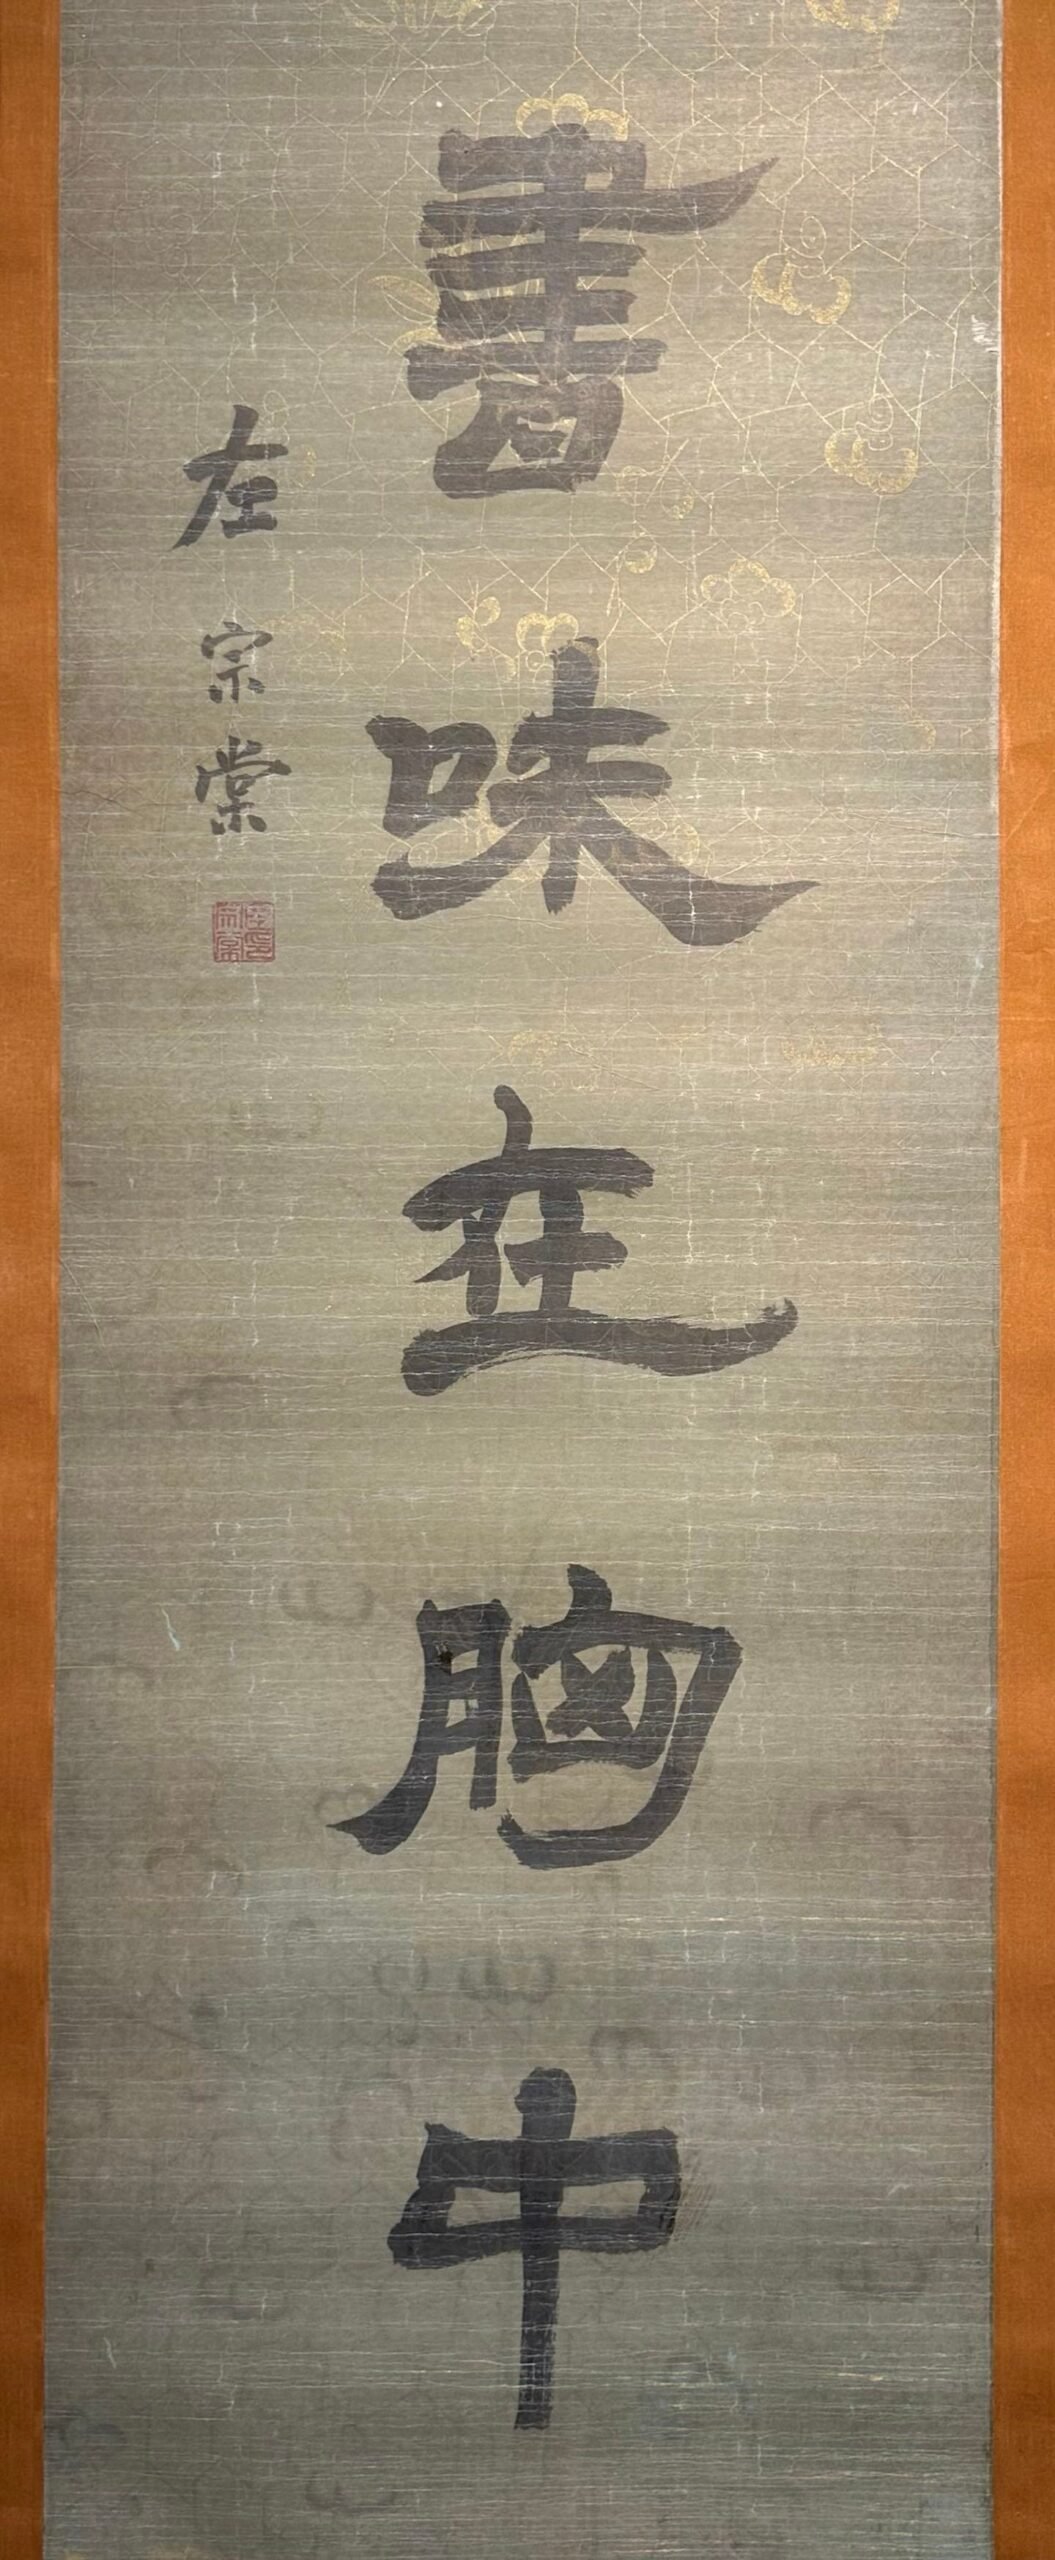 書味在胸中
左宗棠